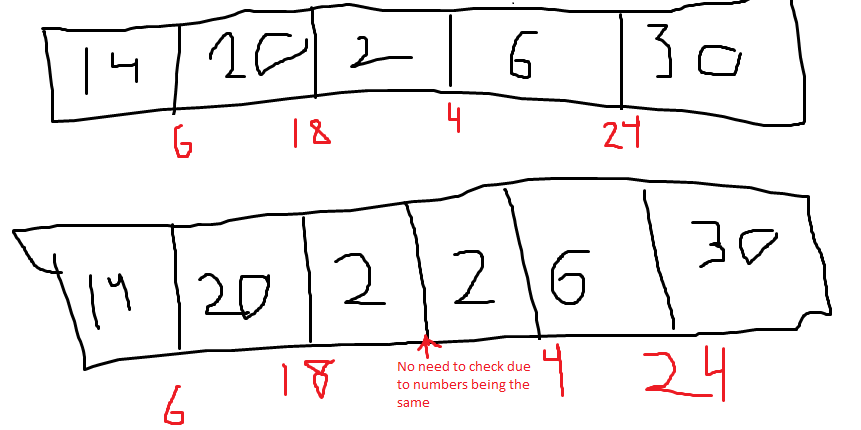 14 20 2 6 30
6 18 4 24
14 20 2 2 6 30
6 18 4 24
No need to check due
to numbers being the
same